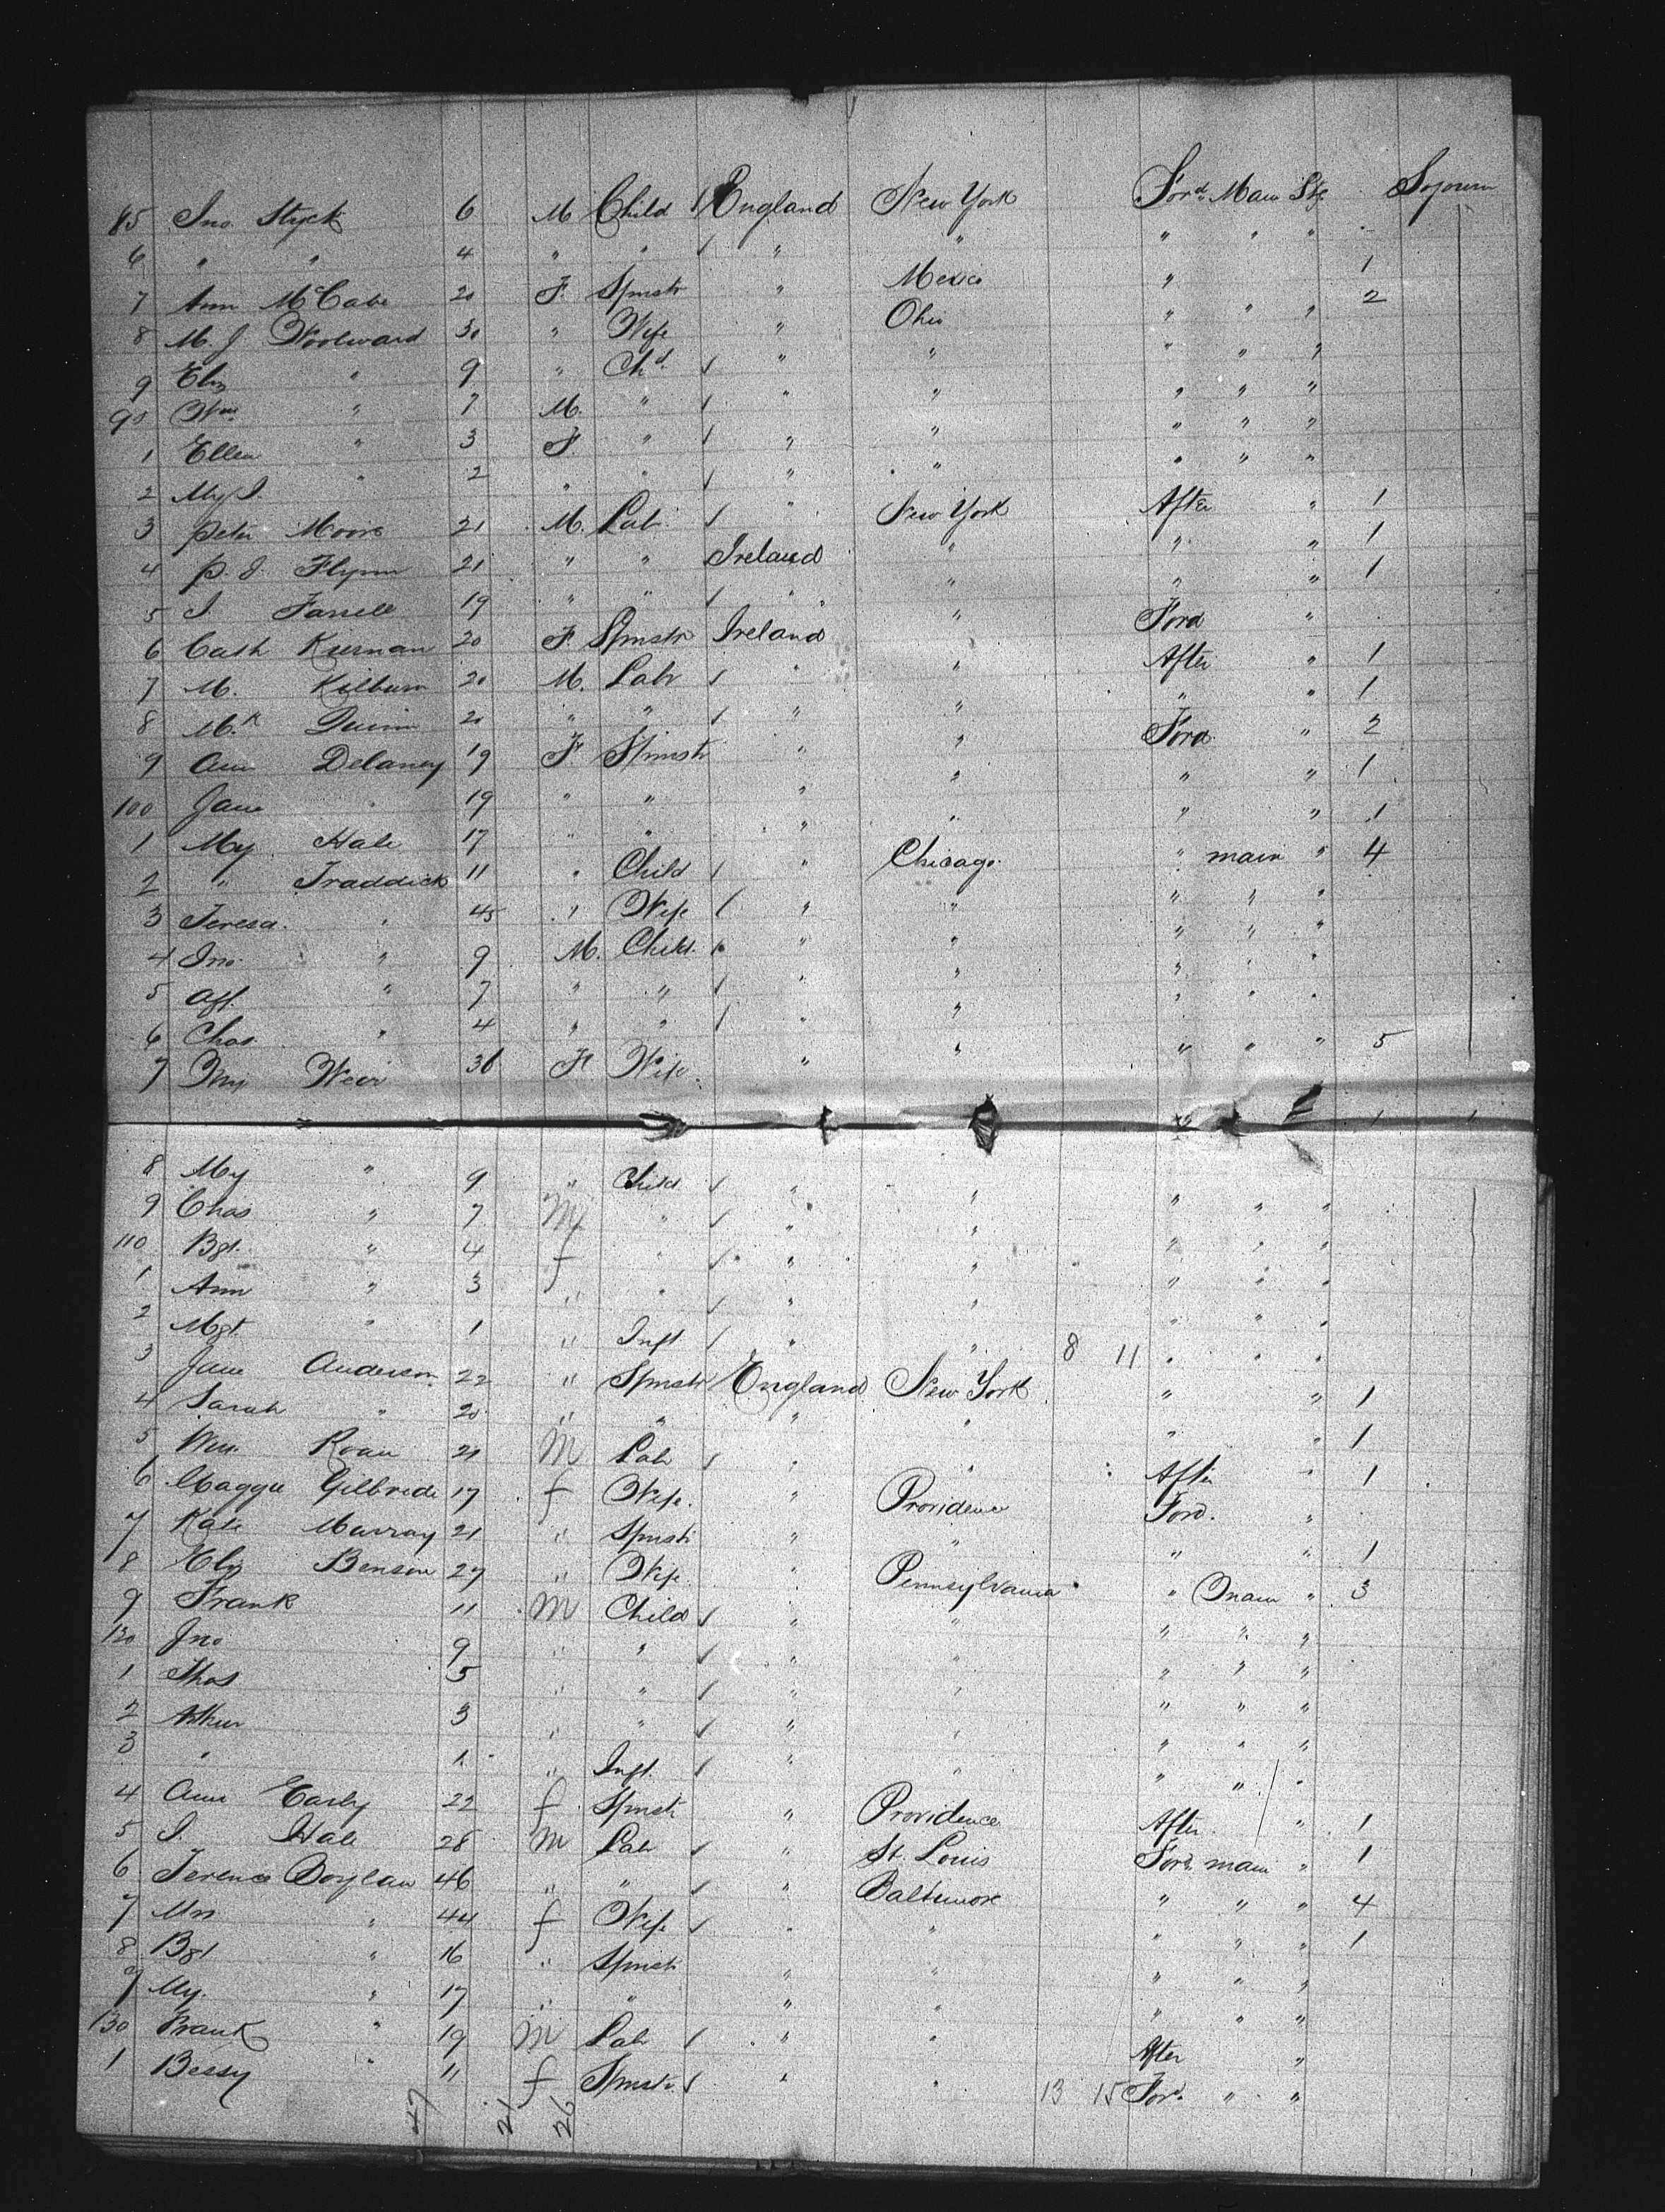 85 Jno Styck 6 M Child England New York Ford Main Stg. Sojourn
6 " " 4 " " " " " " "
7 Ann McCabe 20 F. Spinstr " Mexico " 1
8 M. J Woolward 30 " Wife " Ohio " " " 2
9 Eliz " 9 " Chd " " " " "
90 Wm " 7 M. " " " " " "
1 Ellen " 3 F. " " " " " "
2 My J. " 2 " " " " " " "
3 Peter Moore 21 M. Labr " New York After " 1
4 P. J. Flynn 21 " " Ireland " " " 1
5 J Farrell 19 " " " " " " 1
6 Cath Kiernan 20 F. Spinstr Ireland " Ford "
7 M. Kilburn 20 M. Labr " " After " 1
8 M.k Quinn 20 " " " " " " 1
9 Ann Delaney 19 F Spinstr " " Ford " 2
100 Jane " 19 " " " " " " 1
1 My Hale 17 " " " " " " 1
2 " Traddick 11 " Child " Chicago " main " 4
3 Teresa " 45 " Wife " " " " "
4 Jno " 9 M. Child " " " " "
5 " 7 " " " " " " "
6 Chas " 4 " " " " " " "
7 Weir 36 F Wife " " " " " 5
8 My " 9 " Child " " " " "
9 Chas " 7 M " " " " " "
110 Bgt. " 4 f " " " " " "
1 Ann " 3 " " " " " " "
2 Mgt. " 1 " Inft " " 8 11 " " "
3 Jane Anderson 22 " Spinstr England New York " " 1
4 Sarah " 20 " " " " " " 1
5 Wm Roan 21 M Labr " " After " 1
6 Maggie Gilbride 17 f Wife " Providence Ford. "
7 Kate Murray 21 " Spinstr " " " " 1
8 Eliz Benson 27 " Wife " Pennsylvania " Main " 3
9 Frank 11 M Child " " " " "
120 Jno 9 " " " " " " "
1 Thos 5 " " " " " " "
2 Arthur 3 " " " " " " "
3 " 1 " Inft. " " " " "
4 Ann Early 22 f Spinstr " Providence After " 1
5 J. Hale 28 M Labr " St. Louis Ford main " 1
6 Terence Boylan 46 " " " Baltimore " " " 4
7 Mrs " 44 f Wife " " " " " 1
8 Bgt " 16 " Spinstr " " " " "
9 My. " 17 " " " " " " "
130 Frank " 19 M Labr " " After "
1 Bessy " 11 f Spinstr " " 13 15 Ford " "
47 21 26